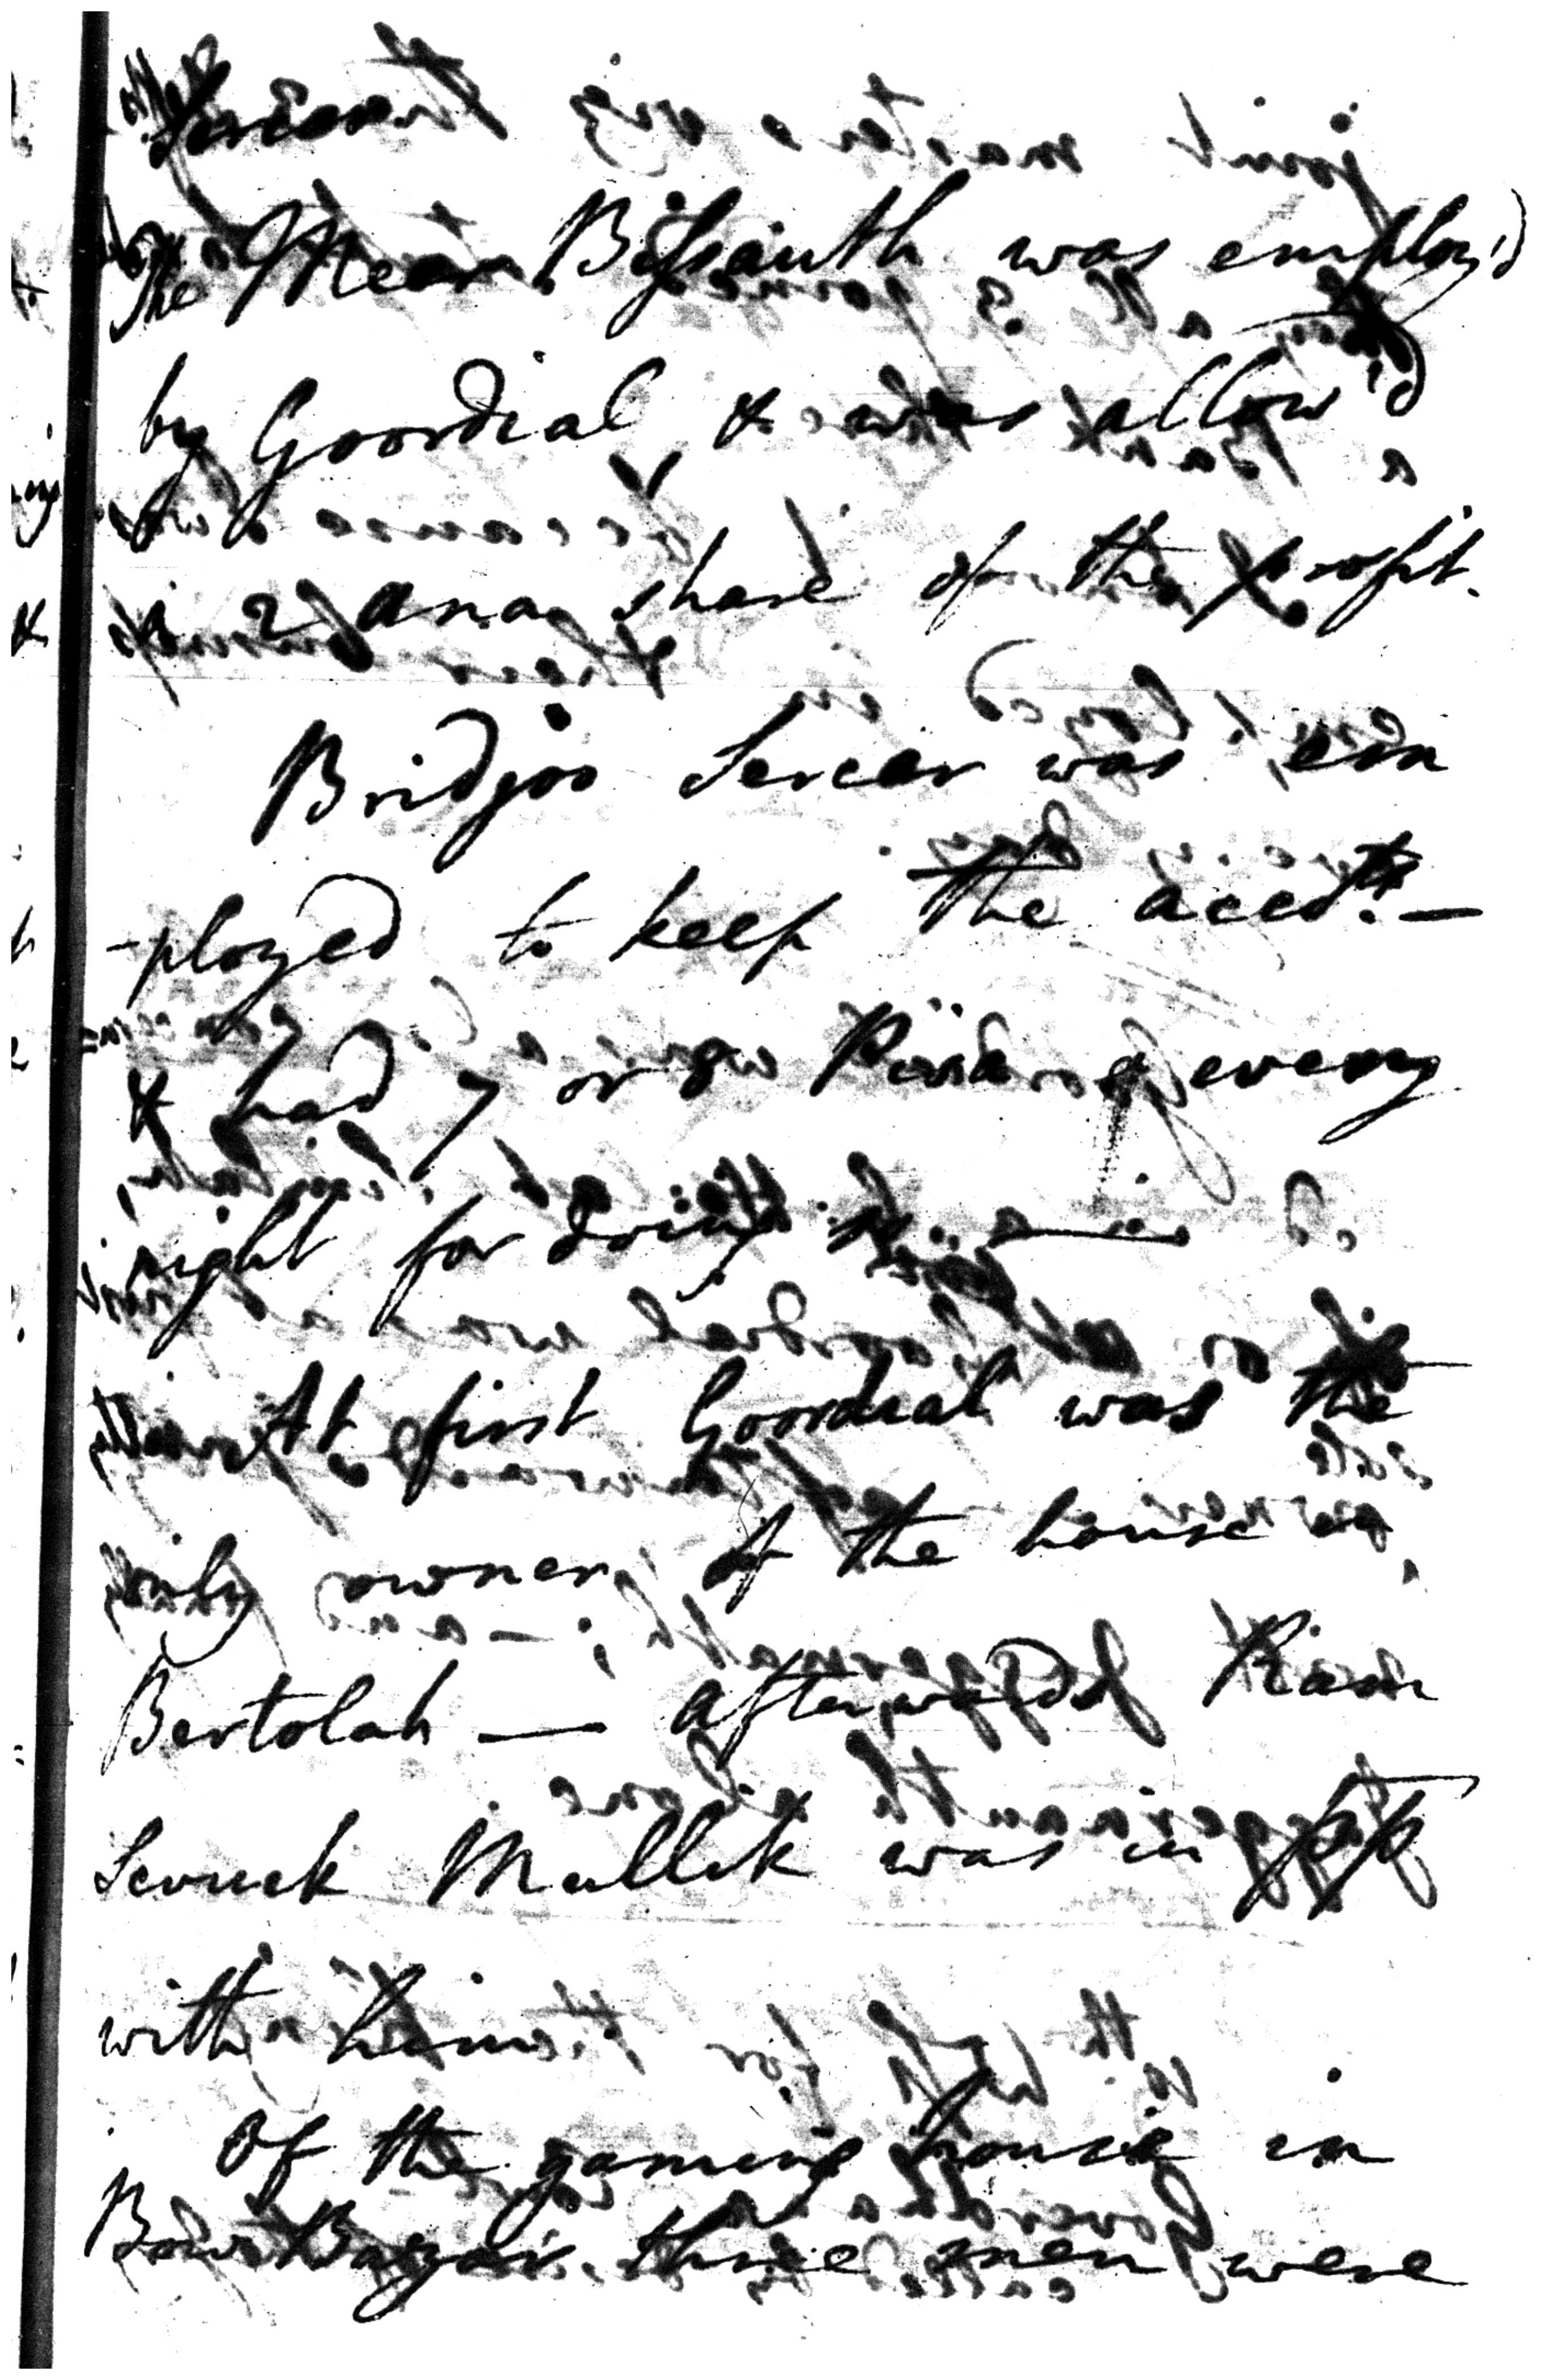 Sercar
The Mear Bissanth was employ'd
by Goordial & was allow'd
a 2 ana share of the profit.
Bridjoo Sercar was em
-ployed to keep the accots. —
& had 7 or 8 Rs every
night for doing so —
At first Goordial was the
only owner of the house in
Bertolah — afterwards Ram
Sevuck Mullik was in
with him
Of the gaming house in
Bow Bazar three men were